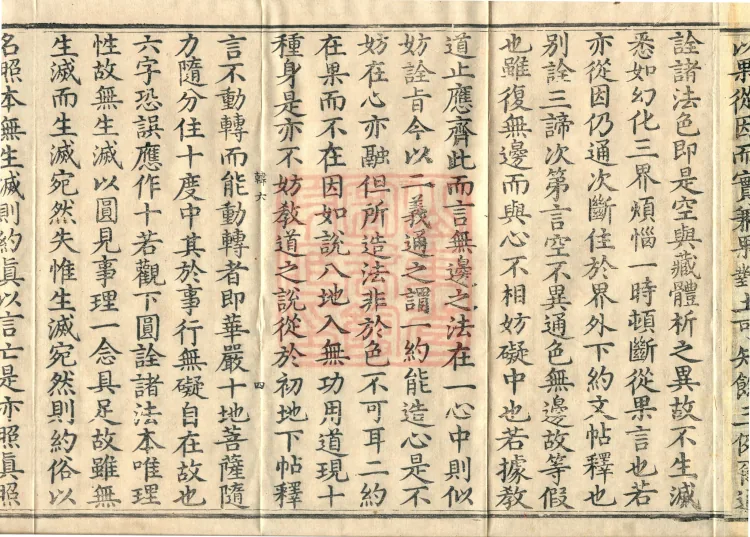 以果從因而實兼
詮諸法色即是空與藏體析之異故不生滅
悉如幻化三界煩惱一時頓斷從果言也若
亦從因仍通次斷住於界外下約文帖釋也
別詮三諦次第言空不異通色無邊故等假
也雖復無邊而與心不相妨礙中也若據教
道止應齊此而言無邊之法在一心中則似
妨詮旨今以二義通之謂一約能造心是不
妨在心亦融但所造法非於色不可耳二約
在果而不在因如說八地入無功用道現十
種身是亦不妨教道之說從於初地下帖釋
韓六
四
言不動轉而能動轉者即華嚴十地菩薩隨
力隨分住十度中其於事行無礙自在故也
六字恐誤應作十若觀下圓詮諸法本唯理
性故無生滅以圓見事理一念具足故雖無
生滅而生滅宛然失惟生滅宛然則約俗以
名照本無生滅則約真以言亡是亦照真照